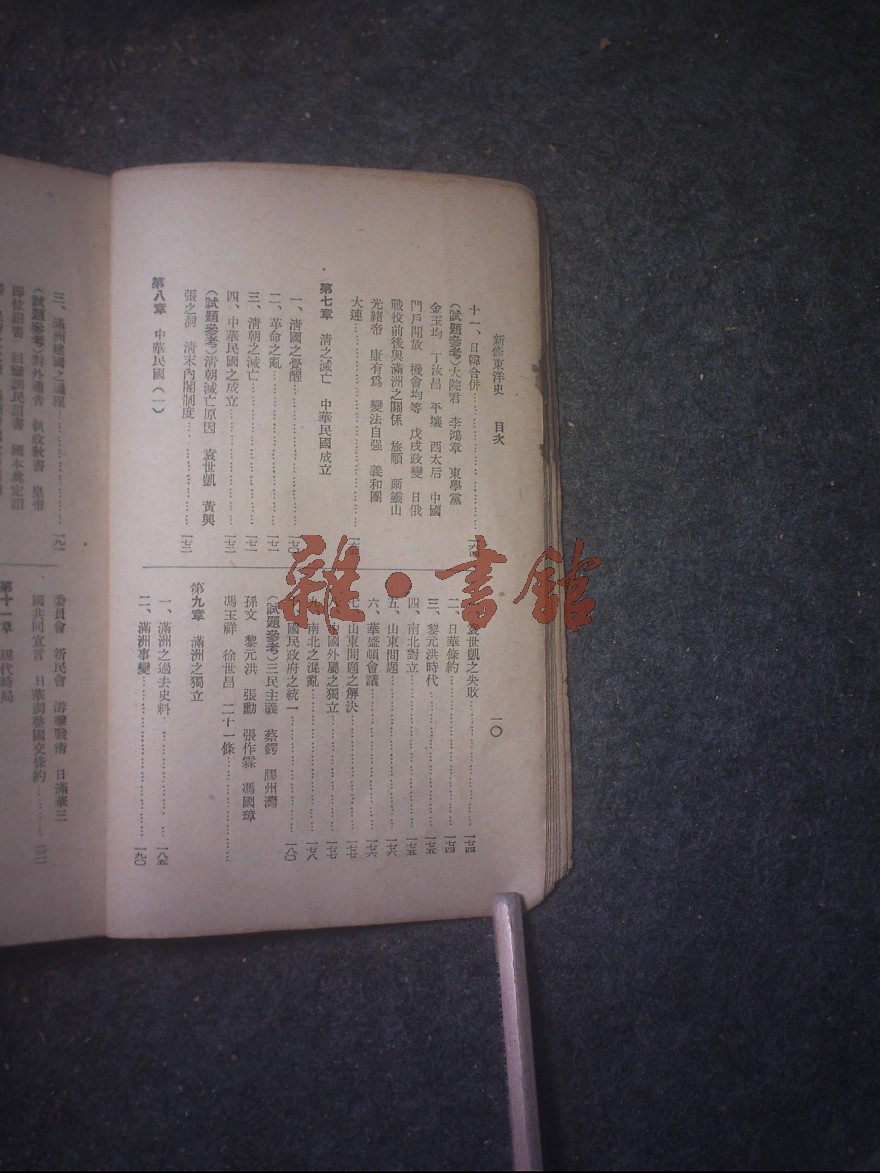 新修東洋史 目次
一〇
十一、日韓合併
(試題參考)大院君 李鴻章 東學黨
金玉均 丁汝昌 平壤 西太后 中國
門戶開放 機會均等 戊戌政變 日俄
戰役前後與滿洲之關係 旅順 爾靈山
光緒帝 康有爲 變法自强 義和團
大連
第七章 清之滅亡 中華民國成立
一、清國之覺醒 一七〇
二、革命之亂 一七一
三、清朝之滅亡 一七一
四、中華民國之成立 一七二
(試題參考)清朝滅亡原因 袁世凱 黃興
張之洞 清末內閣制度 一七三
第八章 中華民國(一)
袁世凱之失敗 一七四
二、日華條約 一七四
三、黎元洪時代 一七五
四、南北對立 一七五
五、山東問題 一七六
六、華盛頓會議 一七六
七、山東問題之解決 一七七
國外屬之獨立 一七七
九、南北之混亂 一七八
國民政府之統一 一八〇
(試題參考)三民主義 蔡鍔 膠州灣
孫文 黎元洪 張勳 張作霖 馮國璋
馮玉祥 徐世昌 二十一條
第九章 滿洲之獨立
一、滿洲之過去史料 一八五
二、滿洲事變 一九〇
三、滿洲建國之過程 一九一
(試題參考)對外通告 執政教書 皇帝
即位詔書 回鑾訓民詔書 國本奠定詔
委員會 新民會 游擊戰術 日滿華三
國共同宣言 日華調整國交條約
第十一章 現代時局
雜·書館